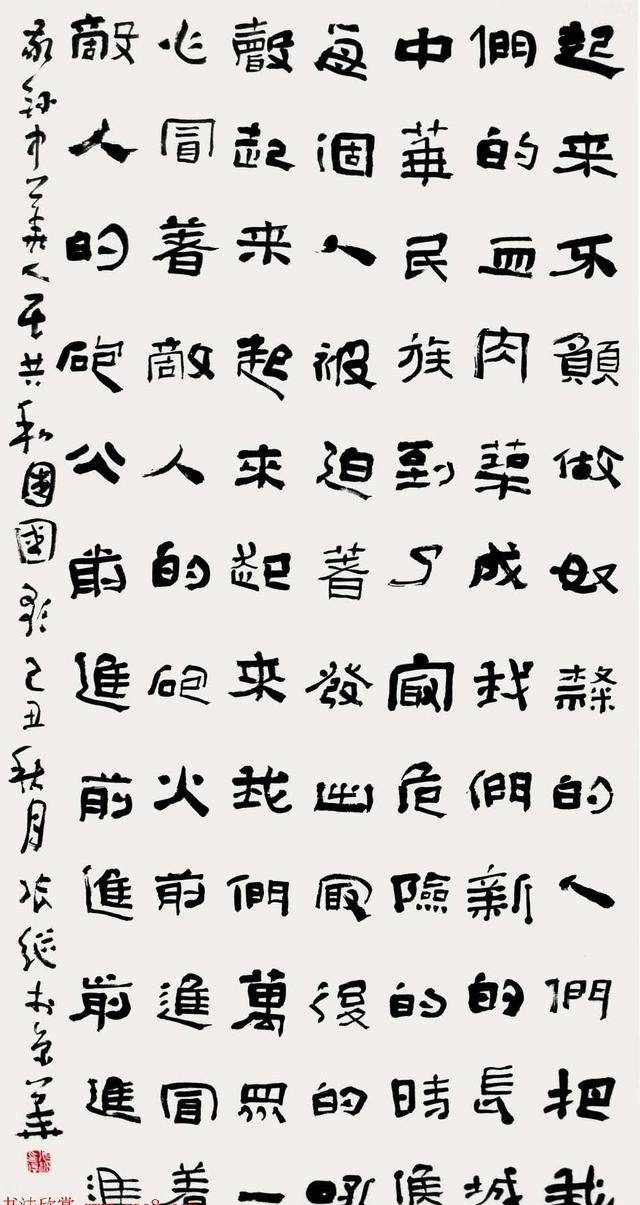 起来不願做奴隸的人們把我
們的血肉築成我們新的長城
中華民族到了最危險的時候
每個人被迫著發出最後的吼
聲起来起來起來我們萬眾一
心冒著敵人的砲火前進冒着
敵人的砲火前進前進前進進
敬録中華人民共和國國歌己丑秋月張継於京華
书法欣赏